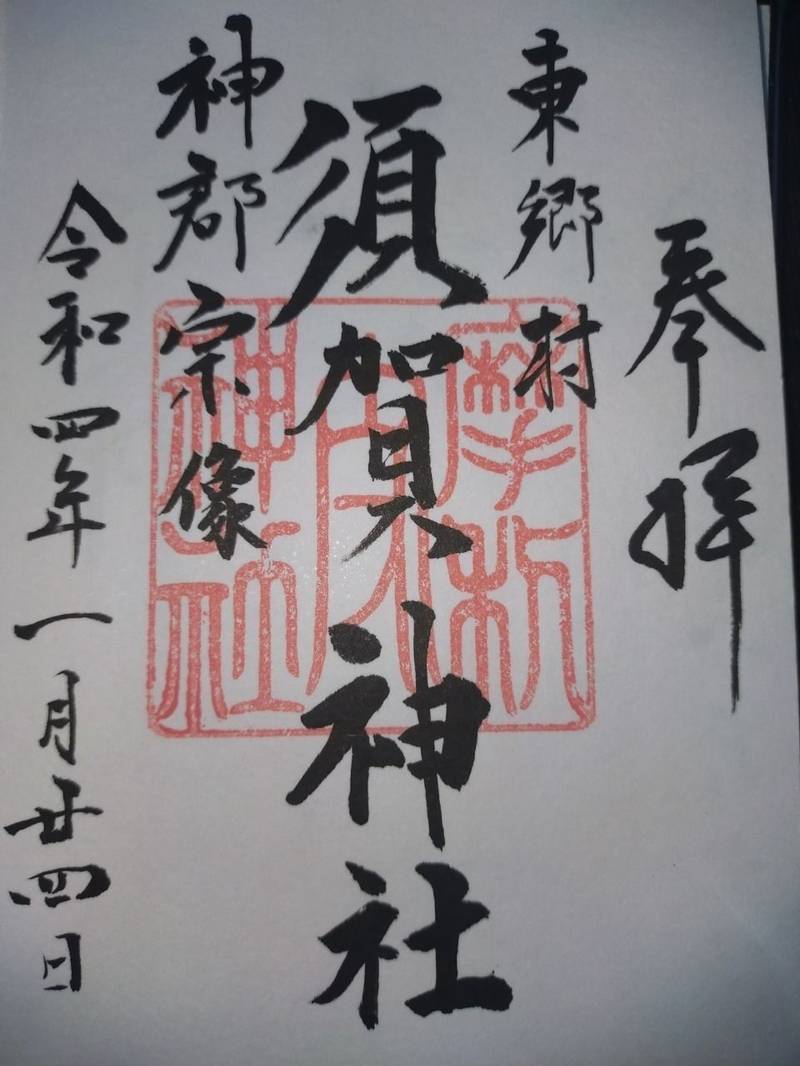 奉拝
東郷村
須賀神社
神郡宗像
令和四年一月廿四日